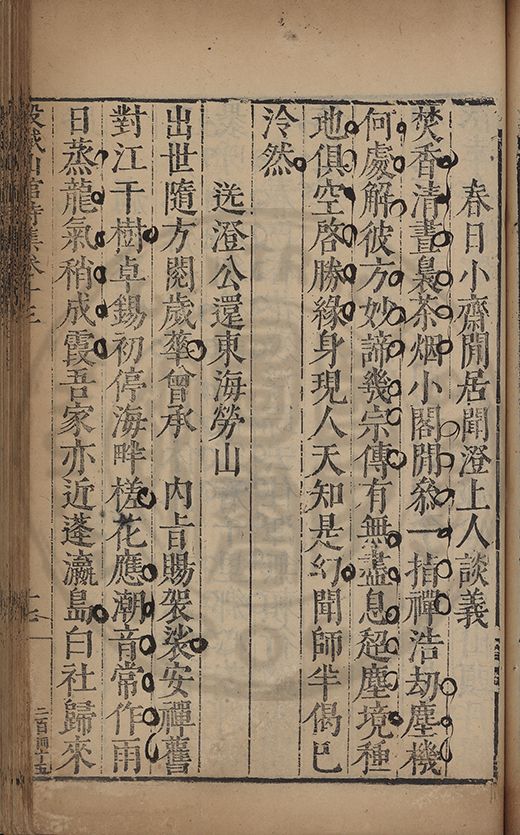 春日小齋閒居聞澄上人談義
焚香清晝裊茶烟小閣閒叅一指禪浩劫塵機
何處解彼方妙諦幾宗傳有無盡息超塵境種
地俱空啓勝緣身現人天知是幻聞師半偈已
泠然
送澄公還東海勞山
出世隨方閱歲華曾承　內旨賜袈裟安禪舊
對江干樹卓錫初停海畔槎花應潮音常作雨
日蒸龍氣稍成霞吾家亦近蓬瀛島白社歸來
山館詩集卷十三
十七
二百四十五